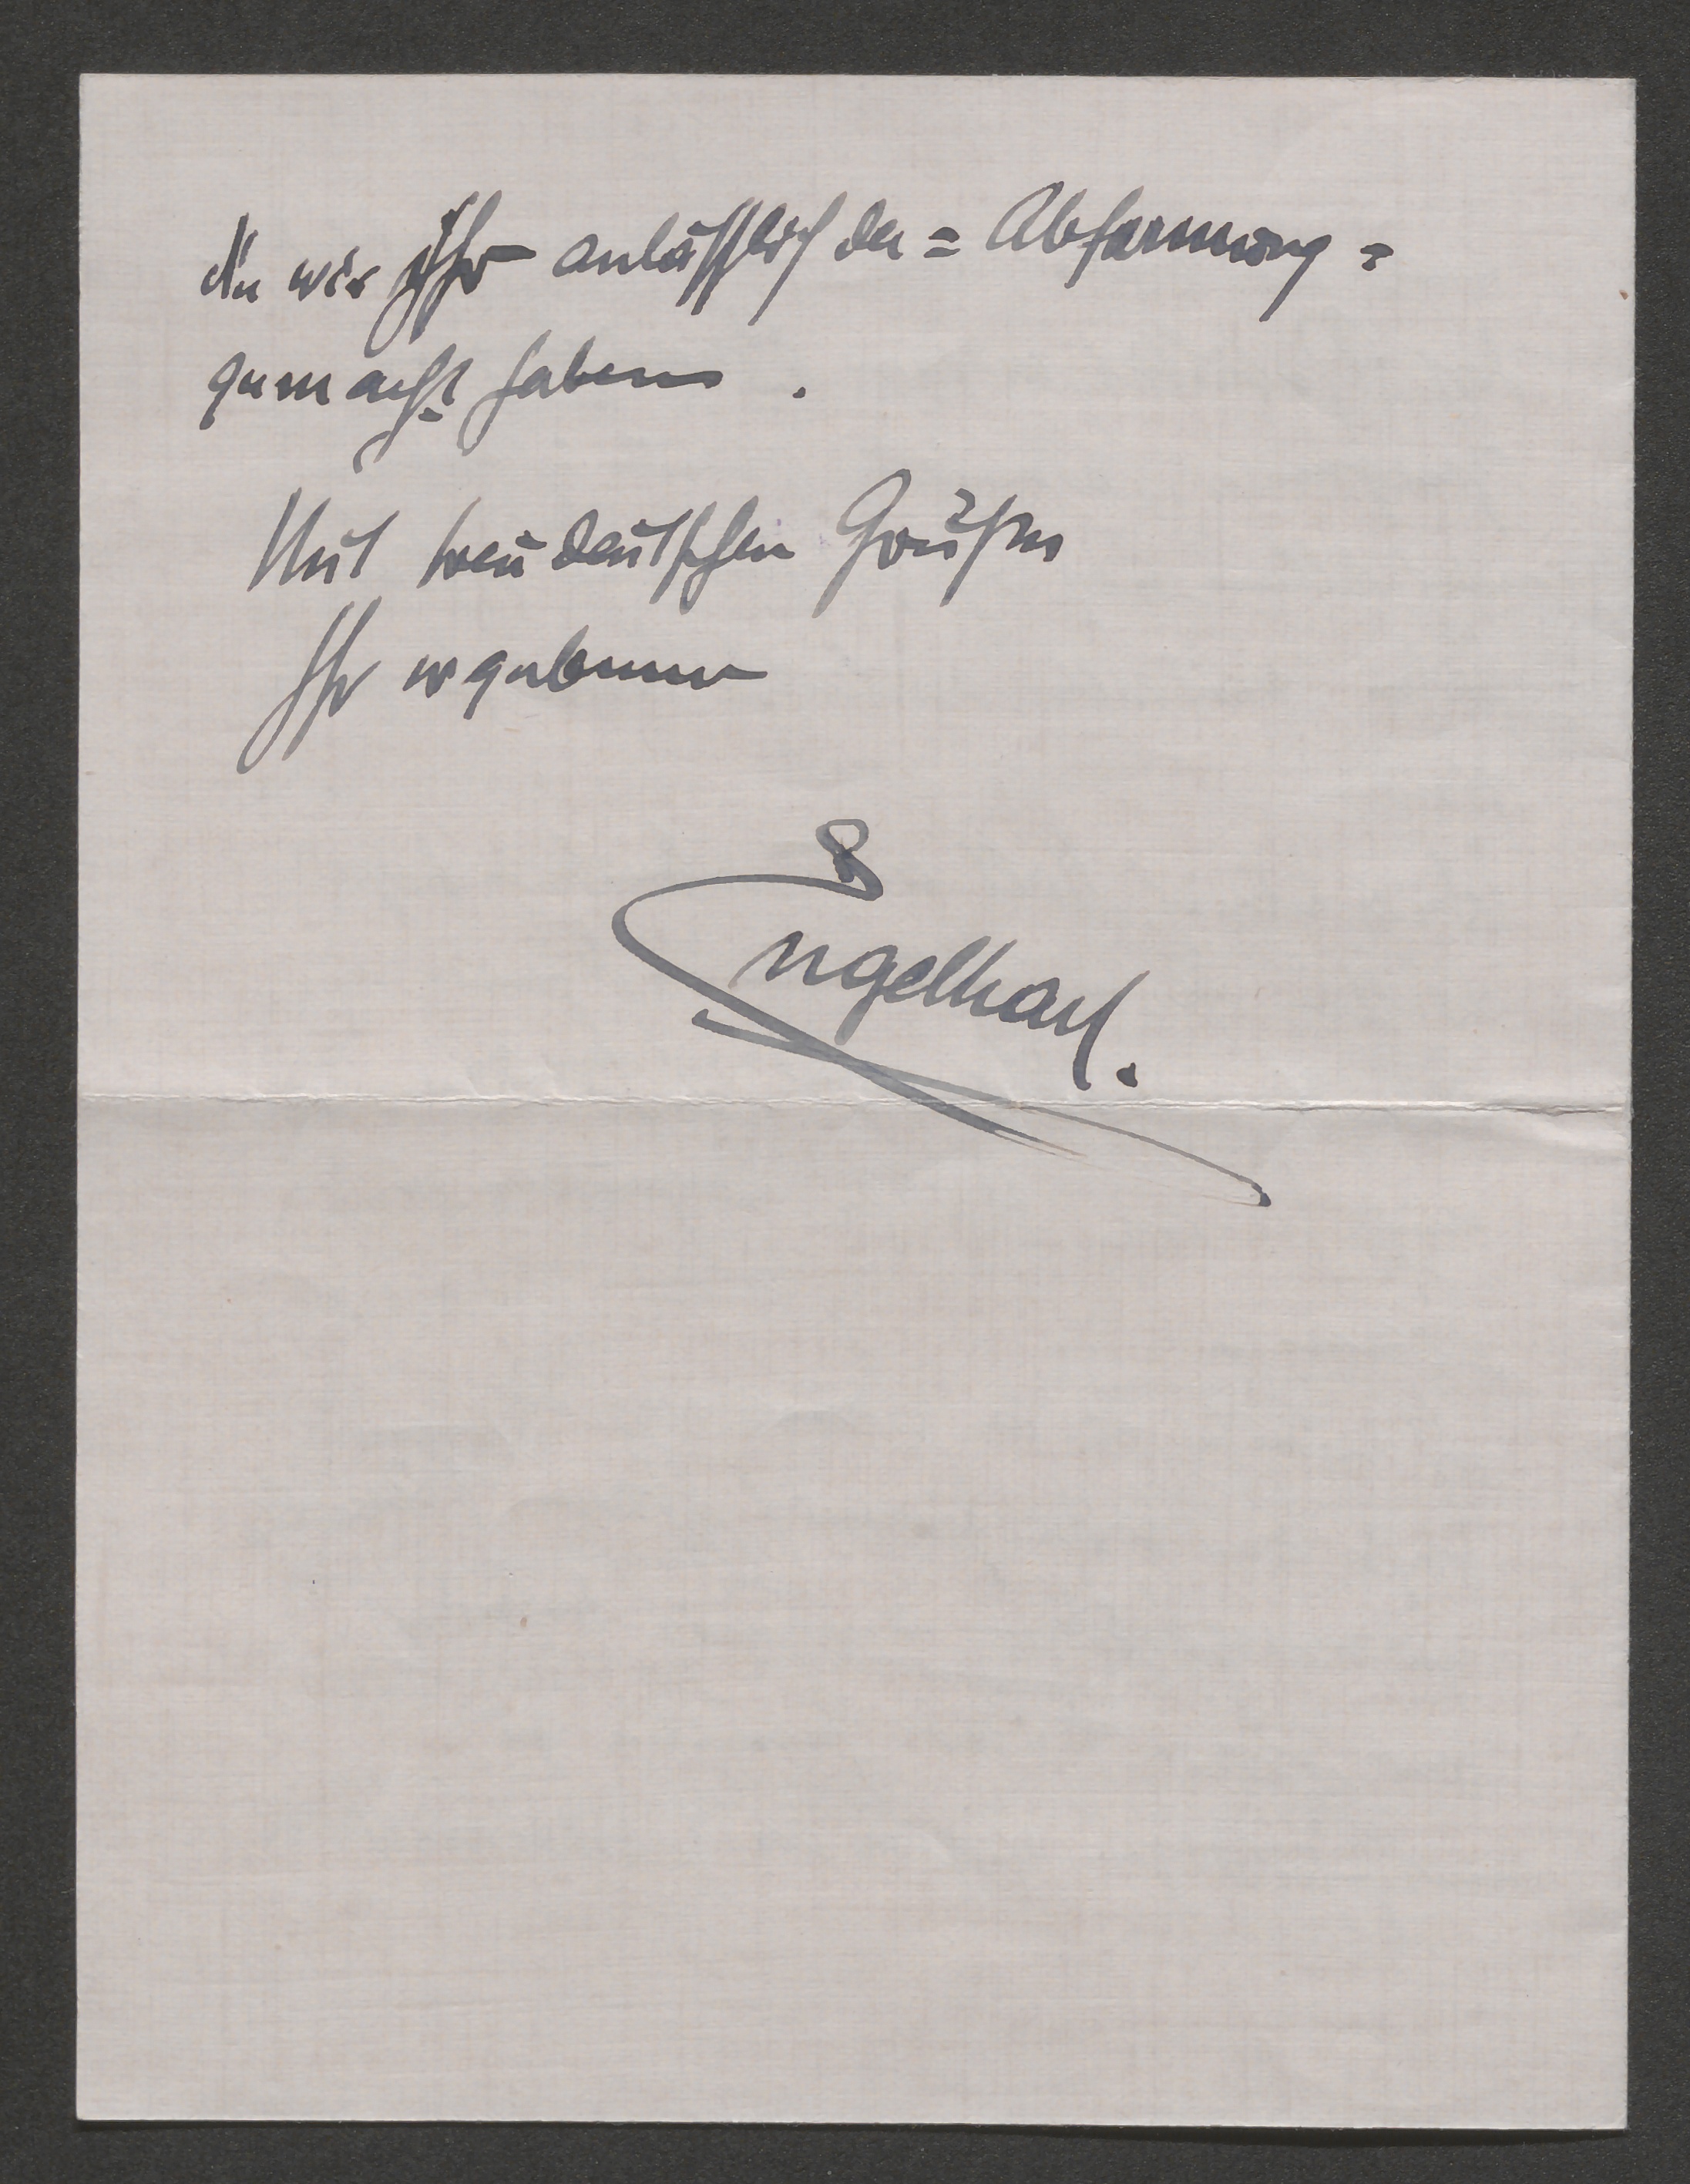 die wir Ihr anlässlich der = Abformung =
gemacht haben .
Mit treudeutschen Grüßen
Ihr ergebener
Engelhart.